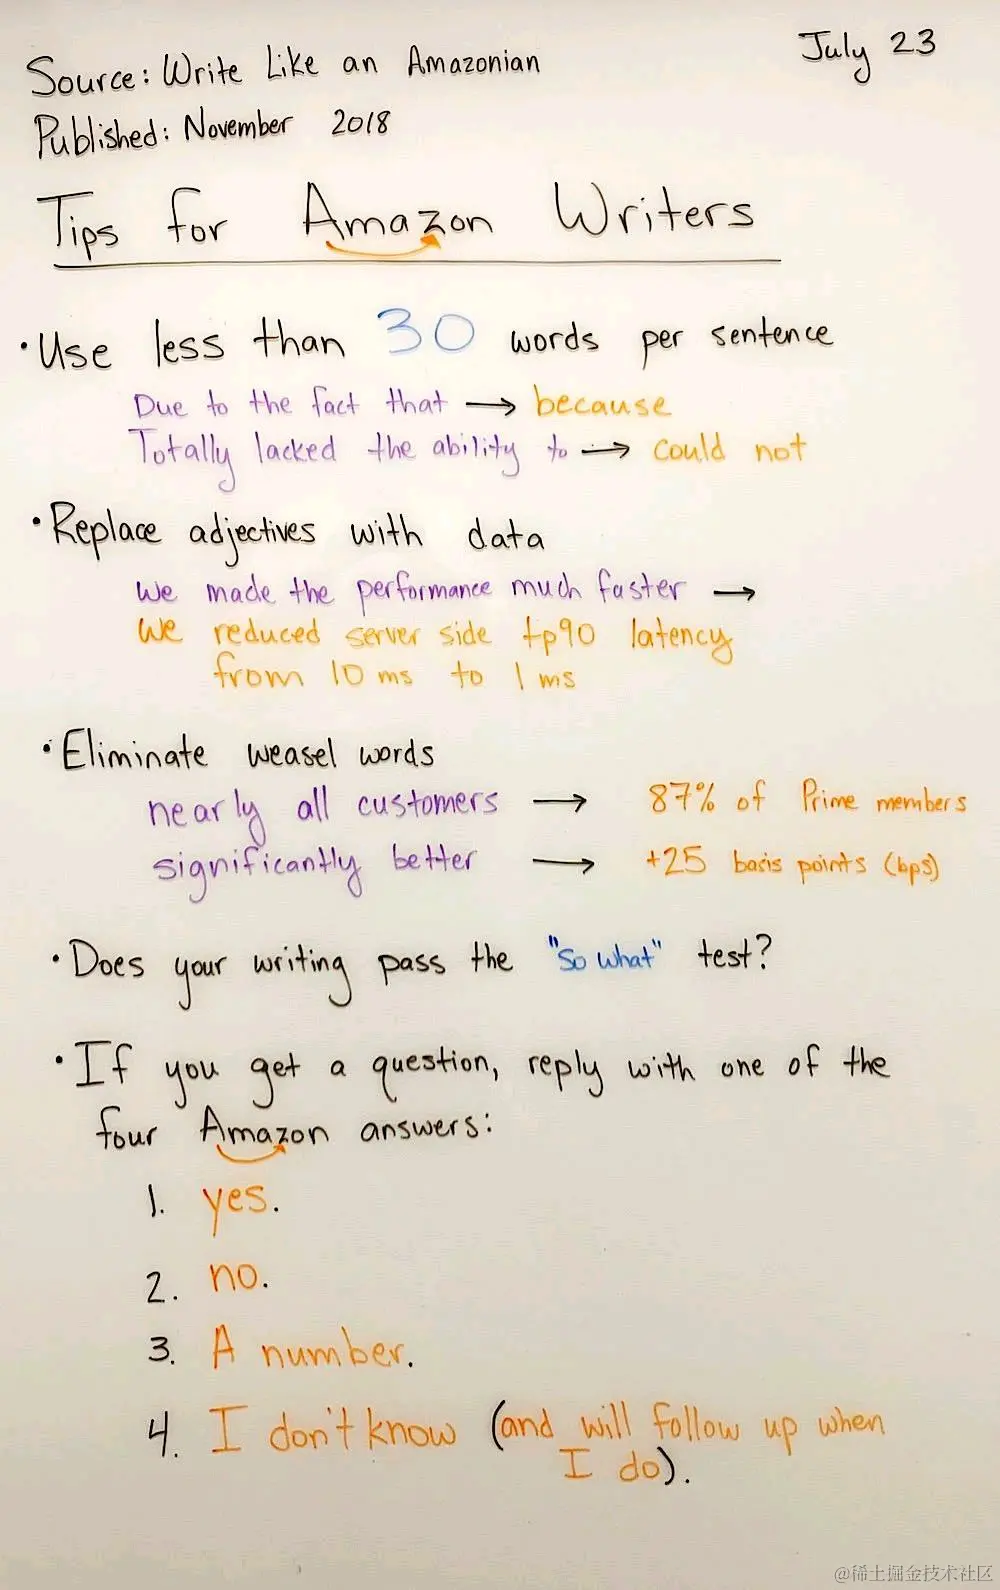 July 23
Source: Write Like an Amazonian
Published: November 2018
Tips for Amazon Writers
• Use less than 30 words per sentence
Due to the fact that → because
Totally lacked the ability to → could not
• Replace adjectives with data
We made the performance much faster →
We reduced server side tp90 latency
from 10 ms to 1 ms
• Eliminate weasel words
nearly all customers → 87% of Prime members
significantly better → +25 basis points (bps)
• Does your writing pass the "So what" test?
• If you get a question, reply with one of the
four Amazon answers:
1. yes.
2. no.
3. A number.
4. I don't know (and will follow up when
I do).
@稀土掘金技术社区